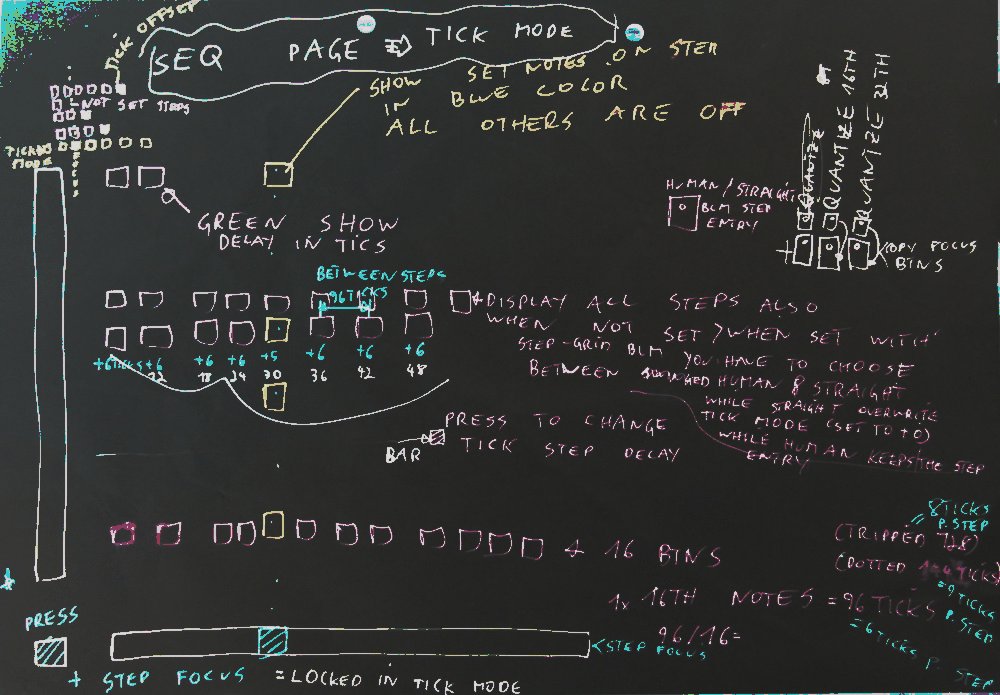 TICK OFFSET
SEQ PAGE ⇒ TICK MODE
NOT SET STEPS
TICK
MODE
SHOW SET NOTES ON STEP
IN BLUE COLOR
ALL OTHERS ARE OFF
GREEN SHOW
DELAY IN TICS
HUMAN/STRAIGHT
BLM STEP
ENTRY
QUANTIZE
QUANTIZE 16TH
QUANTIZE 32TH
COPY FOCUS
BINS
BETWEEN STEPS
96 TICKS
DISPLAY ALL STEPS ALSO
WHEN NOT SET > WHEN SET WITH
STEP-GRID BLM YOU HAVE TO CHOOSE
BETWEEN HUMAN & STRAIGHT
WHILE STRAIGHT OVERWRITE
TICK MODE (SET TO +0)
WHILE HUMAN KEEPS THE STEP
ENTRY
+6 TICKS +6 +6 +6 +5 +6 +6 +6
12 18 24 30 36 42 48
PRESS TO CHANGE
TICK STEP DELAY
BAR
8 TICKS
P. STEP
(TRIPPED 128)
(DOTTED 144 TICKS)
= 9 TICKS
P. STEP
+ 16 BINS
1x 16TH NOTES = 96 TICKS
96/16=
= 6 TICKS P. STEP
PRESS
STEP FOCUS
+ STEP FOCUS = LOCKED IN TICK MODE